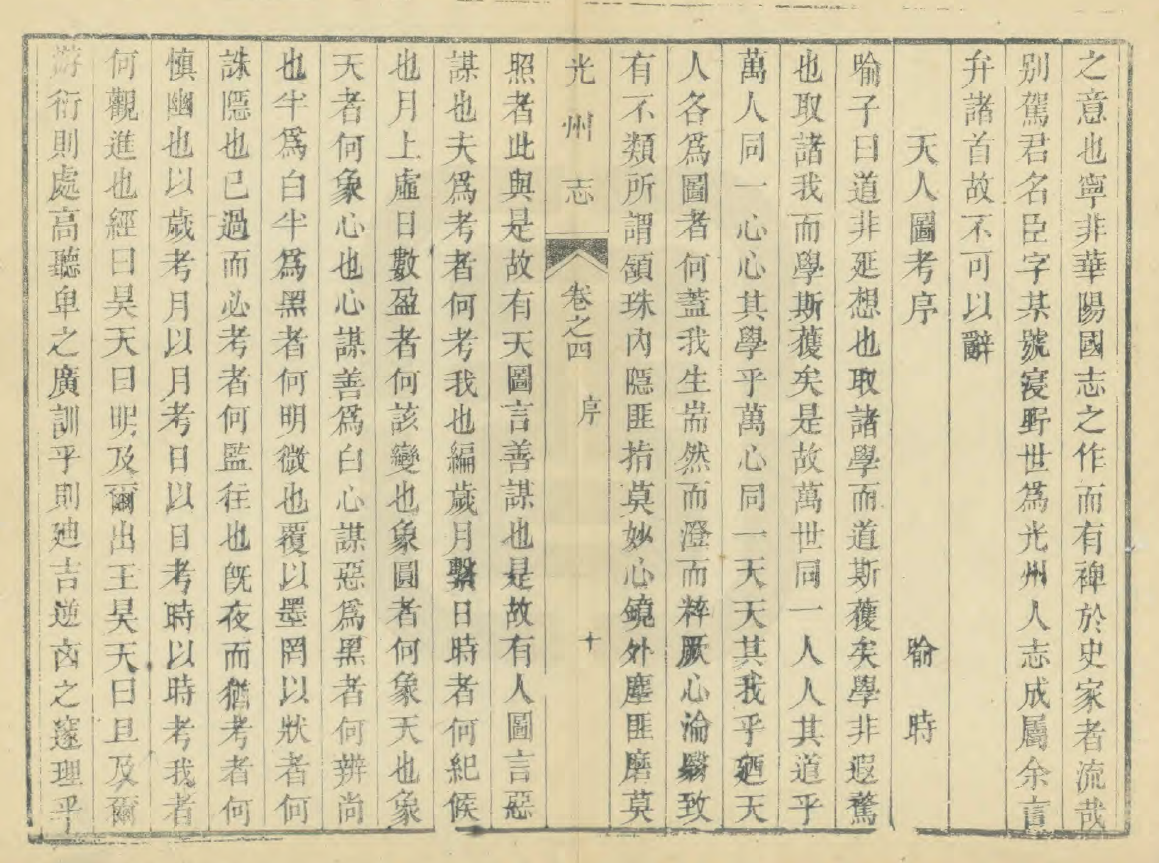 之意也寧非華陽國志之作而有裨於史家者流哉
別駕君名臣字某號寖野世爲光州人志成屬余言
弁諸首故不可以辭
天人圖考序 喻時
喻子曰道非延想也取諸學而道斯獲矣學非遐騖
也取諸我而學斯獲矣是故萬世同一人人其道乎
萬人同一心心其學乎萬心同一天天其我乎廼天
人各爲圖者何蓋我生耑然而澄而粹厥心淪翳致
有不類所謂頷珠內隱匪拾莫妙心鏡外塵匪磨莫
光州志 卷之四 序 十
照者此與是故有天圖言善謀也是故有人圖言惡
謀也夫爲考者何考我也編歲月繫日時者何紀候
也月上虛日數盈者何該變也象圓者何象天也象
天者何象心也心謀善爲白心謀惡爲黑者何辨尚
也半爲白半爲黑者何明微也覆以墨罔以狀者何
誅隱也已過而必考者何監往也旣夜而猶考者何
愼幽也以歲考月以月考日以日考時以時考我者
何觀進也經曰昊天曰明及爾出王昊天曰旦及爾
游衍則處高聽卑之廣訓乎則廸吉逆凶之邃理乎